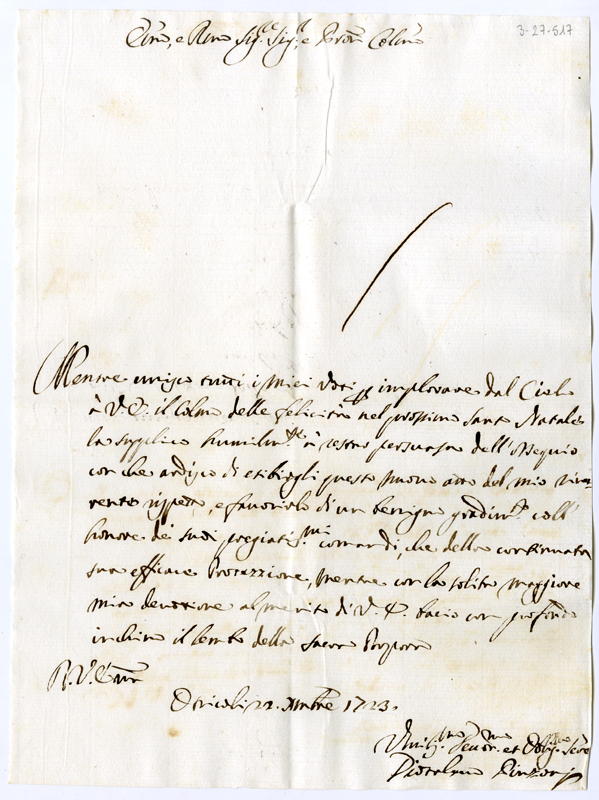 3-27-517
Emo, e Rmo Sigre Sigr, e Pron Colmo
Mentre unisco tutti i miei voti per implorare dal Cielo
à V. E. il Colmo delle felicità nel prossimo Santo Natale
la supplico humilmte à restar persuasa dell'ossequio
con che ardisco di esibirgli questo nuovo atto del mio rive-
rente rispetto, e favorirlo di un benigno gradimto coll'
honore de suoi pregiatismi comandi, che della continuata
sua efficace Protezzione, mentre con la solita maggiore
mia devotione al merito di V. E. bacio con profondo
inchino il lembo della Sacra Porpora
D. V. Emza
Otricoli 22. Xmbre 1723.
Umilmo Devotmo et Obligmo Servre